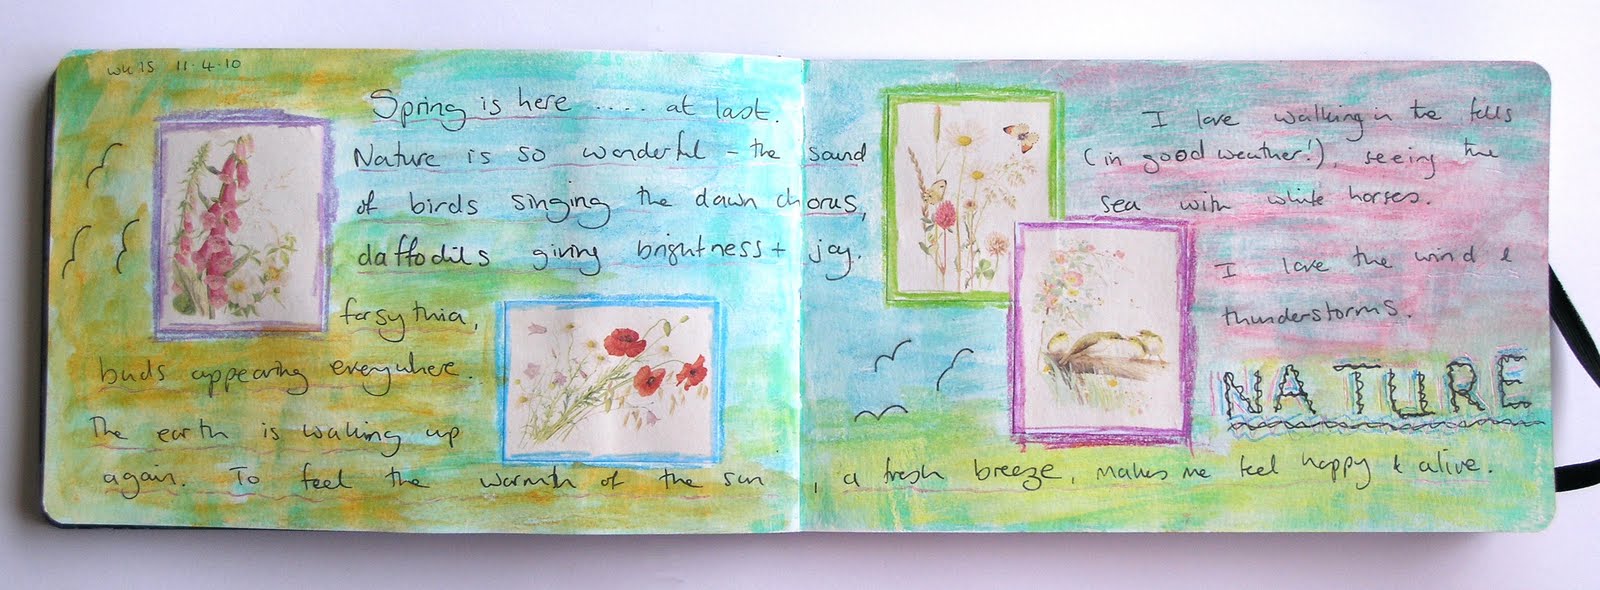 wk 15 11.4.10
Spring is here .... at last.
Nature is so wonderful - the sound
of birds singing the dawn chorus,
daffodils giving brightness + joy.
forsythia,
buds appearing everywhere.
The earth is waking up
again. To feel the warmth of the sun, a fresh breeze, makes me feel happy & alive.
I love walking in the fells
(in good weather!), seeing the
sea with white horses.
I love the wind &
thunderstorms.
NATURE